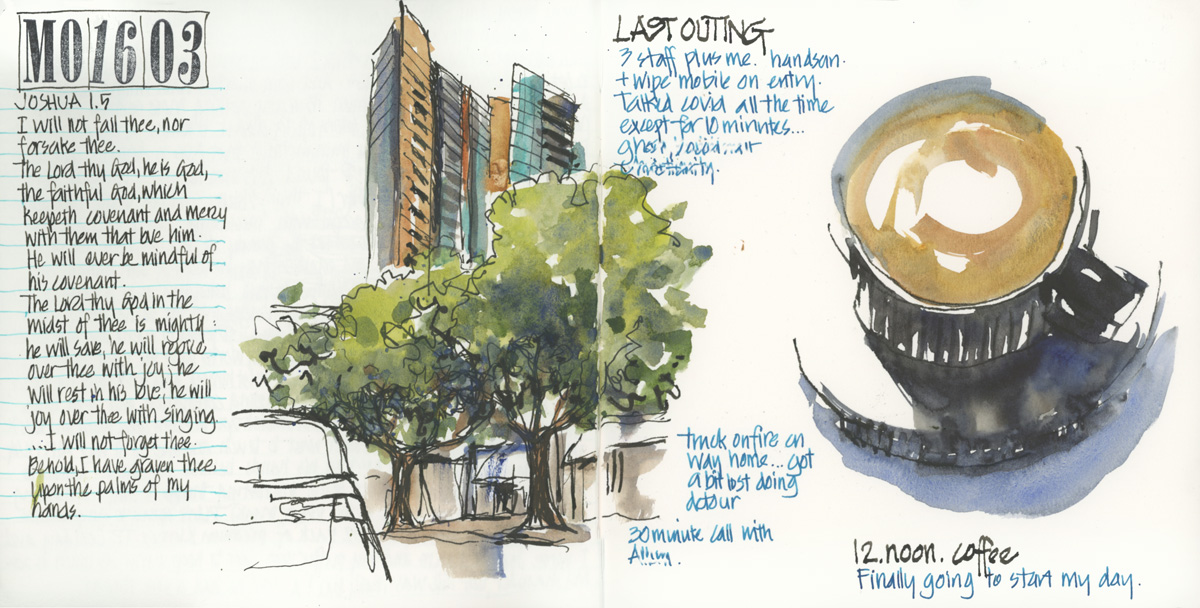 MO 16 03
JOSHUA 1.5
I will not fail thee, nor
forsake thee.
The Lord thy God, he is God,
the faithful God, which
keepeth covenant and mercy
with them that love him.
He will ever be mindful of
his covenant.
The Lord thy God in the
midst of thee is mighty:
he will save, he will rejoice
over thee with joy, he
will rest in his love, he will
joy over thee with singing
...I will not forget thee.
Behold, I have graven thee
upon the palms of my
hands.
LAST OUTING
3 staff plus me. handsan.
+ wipe mobile on entry.
Talked covid all the time
except for 10 minutes...
truck on fire on
way home... got
a bit lost doing
detour
30 minute call with
12.noon. coffee
Finally going to start my day.